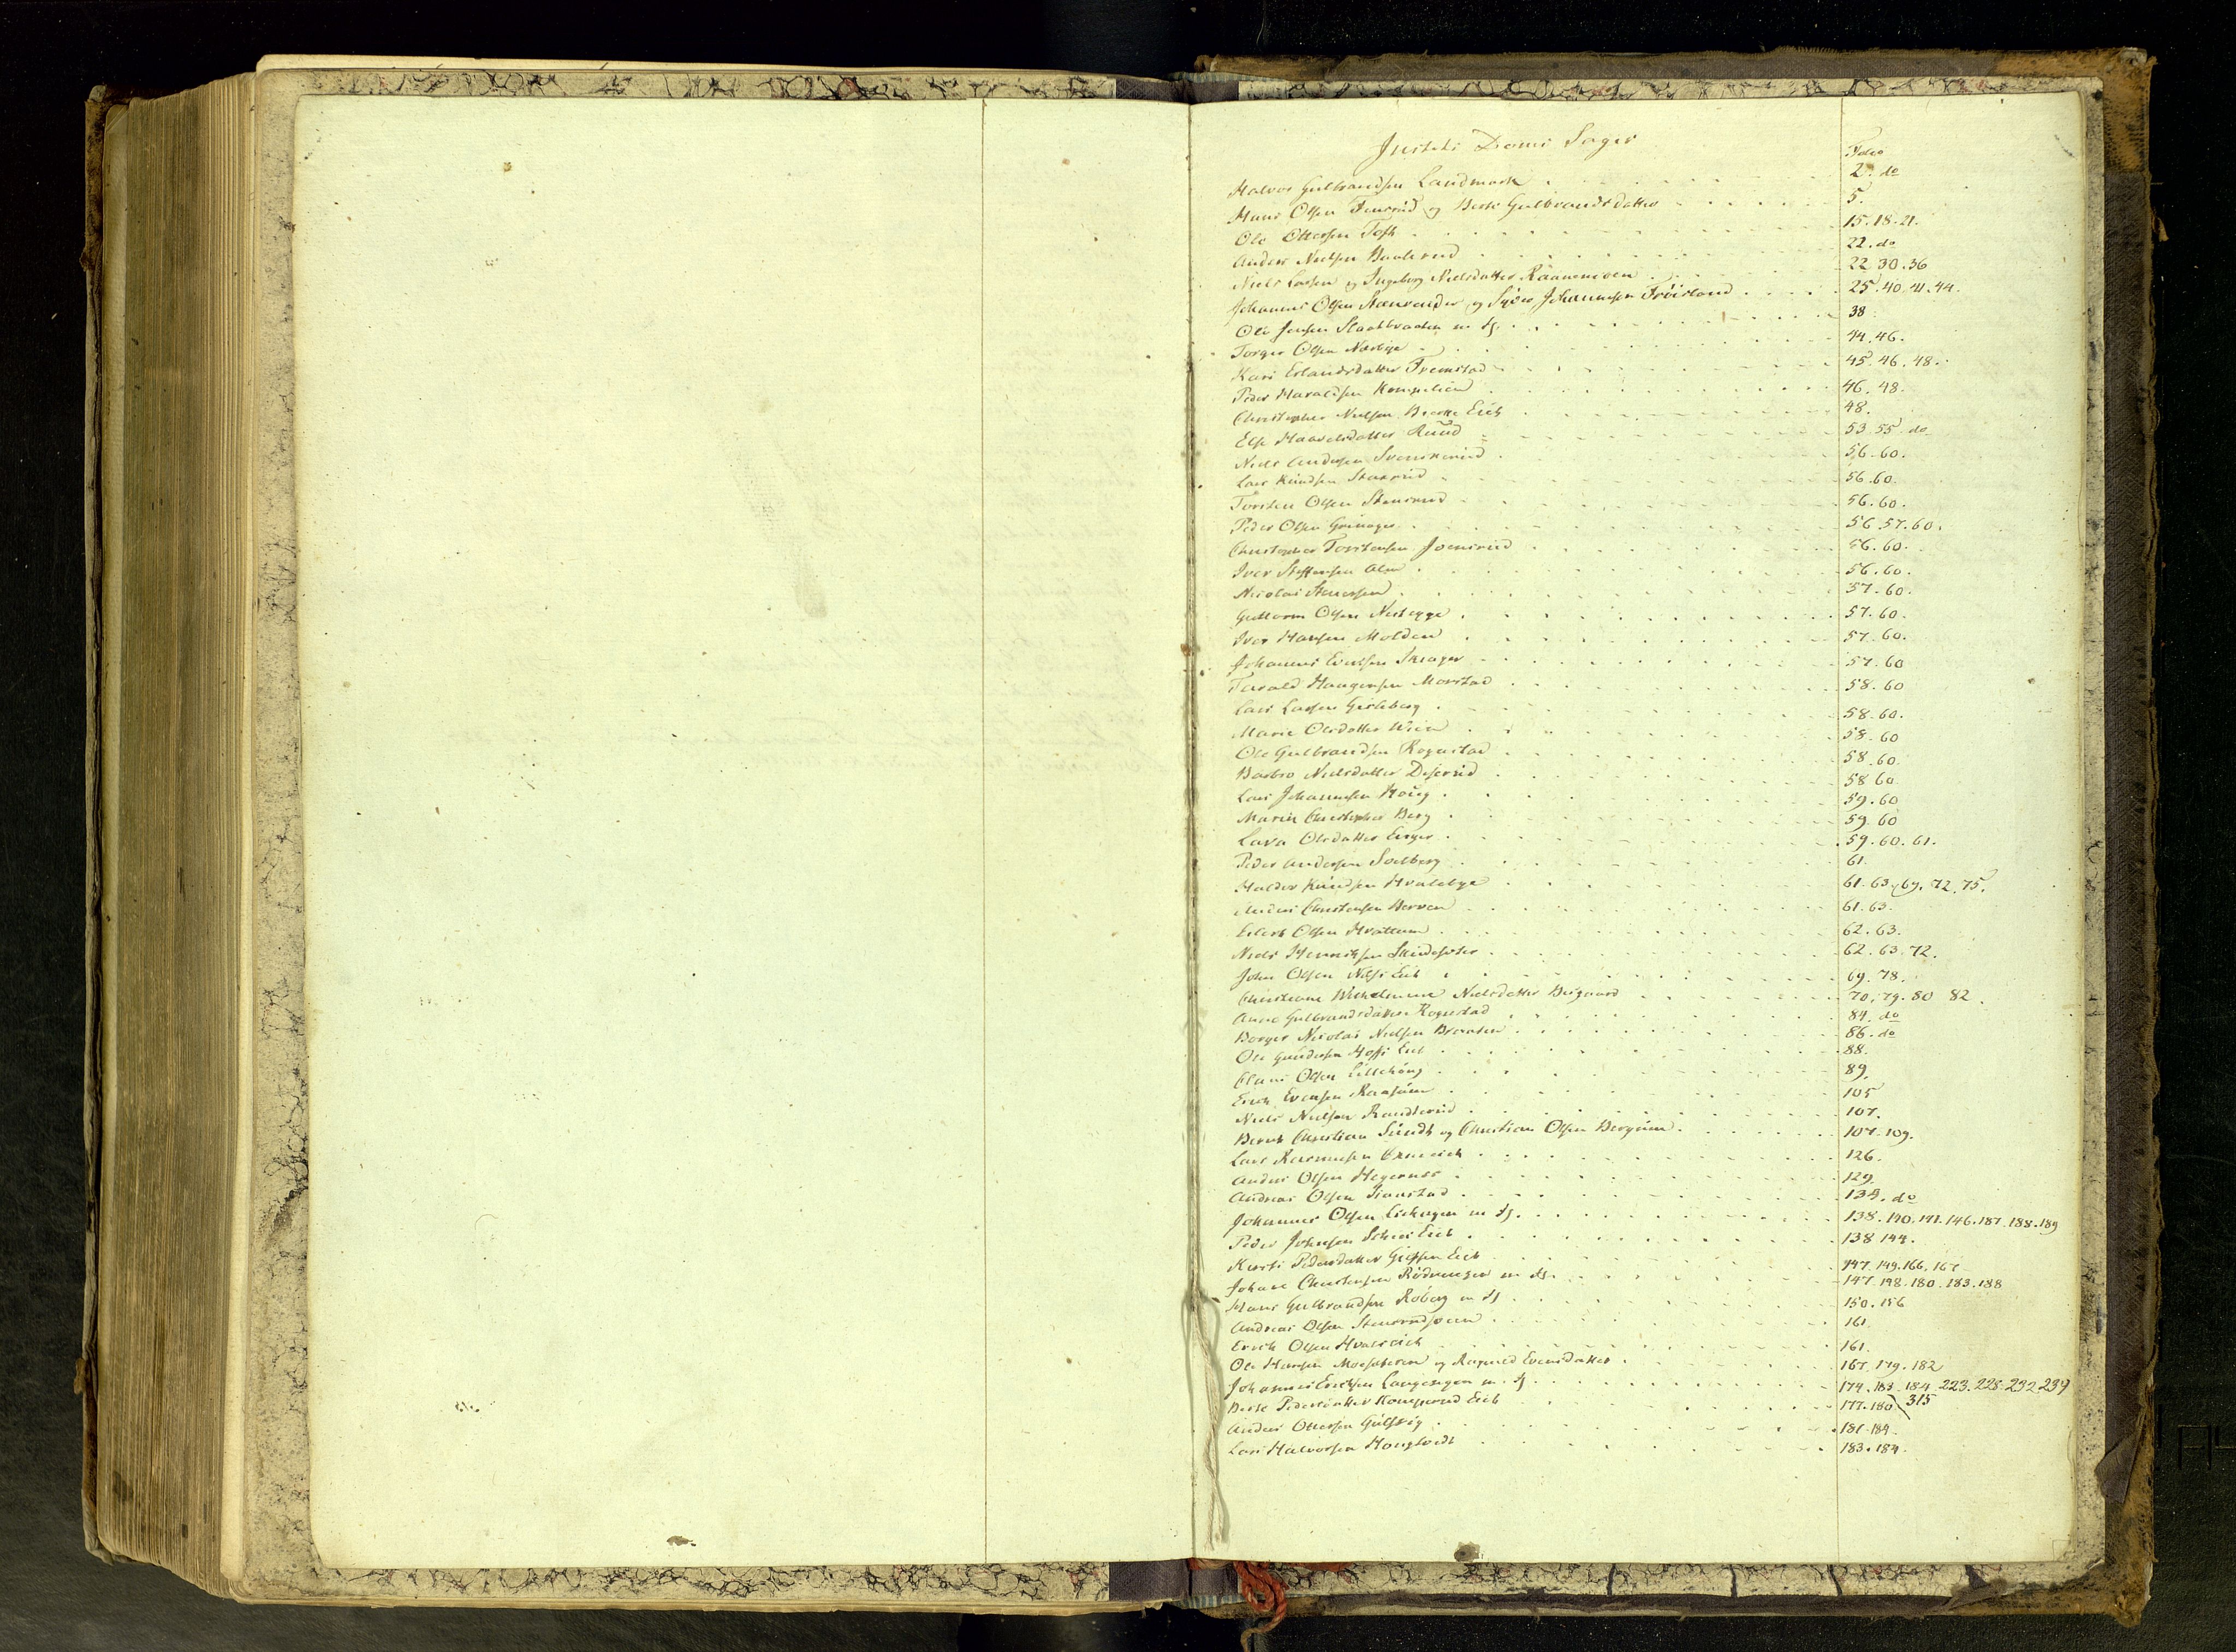 Justits Doms Sager
Folio
Halvor Gulbrandsen Landmark 2. do
Hans Olsen Fensrud og Berte Gulbrandsdatter 5.
Ole Ottersen Fosh 15. 18. 21.
Anders Nielsen 22. do
Niels Larsen og Ingeborg Nielsdatter 22 30. 36
Johannes Olsen og Johannesen Fröisland 25. 40. 41. 44.
Ole Jensen Slaatbraaten m. fl. 38
Torger Olsen Nordbye 44. 46.
Kari Erlandsdatter Fremstad 45. 46. 48.
Peder Haraldsen 46. 48.
Christopher Nielsen Bierke Eiet 48.
Else Haavelsdatter Ruud 53 55 do
Niels Andersen Svenskerud 56. 60.
Lars Knudsen 56. 60.
Torsten Olsen Stensrud 56. 60.
Peder Olsen Grinager 56 57. 60.
Christopher Torstensen Joensrud 56. 60.
Iver Steffensen Alm 56. 60.
Nicolai Stenersen 57. 60.
Guttorm Olsen 57. 60.
Iver Hansen Molden 57. 60.
Johannes Evensen 57. 60
Harald Haagensen Morstad 58. 60
Lars Larsen Gisleberg 58. 60.
Marie Olsdatter Wien 58. 60
Ole Gulbrandsen Rognstad 58. 60
Barbro Nielsdatter 58 60
Lars Johannesen Houg 59. 60
Marie Christopher Berg 59. 60
Lava Olsdatter Enger 59. 60. 61.
Peder Andersen Solberg 61.
Halder Knudsen Hvalebye 61. 63. 69. 72. 75.
Anders Christensen Berven 61. 63.
Eilert Olsen Hvattum 62. 63.
Niels Henriksen 62. 63. 72.
John Olsen Eiet 69. 78.
Christiane Wilhelmine Nielsdatter Bergaard 70. 79. 80 82.
Anne Gulbrandsdatter Rognstad 84. do
Borger Nicolai Nielsen 86. do
Ole Gundersen Eiet 88.
Claus Olsen Lillehoug 89.
Erick Evensen 105
Niels Nielsen 107.
Bernt Christian Sundt og Christian Olsen Bergum 107. 109.
Lars Rasmussen 126.
Anders Olsen Hegernes 129.
Andreas Olsen 134. do
Johannes Olsen m. fl. 138. 140. 141. 146. 187. 188. 189
Peder Johnsen Eiet 138 144.
Kersti Pedersdatter Eiet 147. 149. 166. 167
Johan Christensen m. fl. 147. 148. 180. 183. 188
Hans Gulbrandsen Roberg m. fl. 150. 156
Andreas Olsen 161.
Erick Olsen 161.
Ole Hansen og Ragnild Evensdatter 167. 179. 182
Johannes Ericksen m. fl. 174. 183. 184 223. 228. 232 234
315
Berte Pedersdatter Eiet 177. 180
Anders Ottersen Gulsvig 181. 184.
Lars Halvorsen 183. 184.